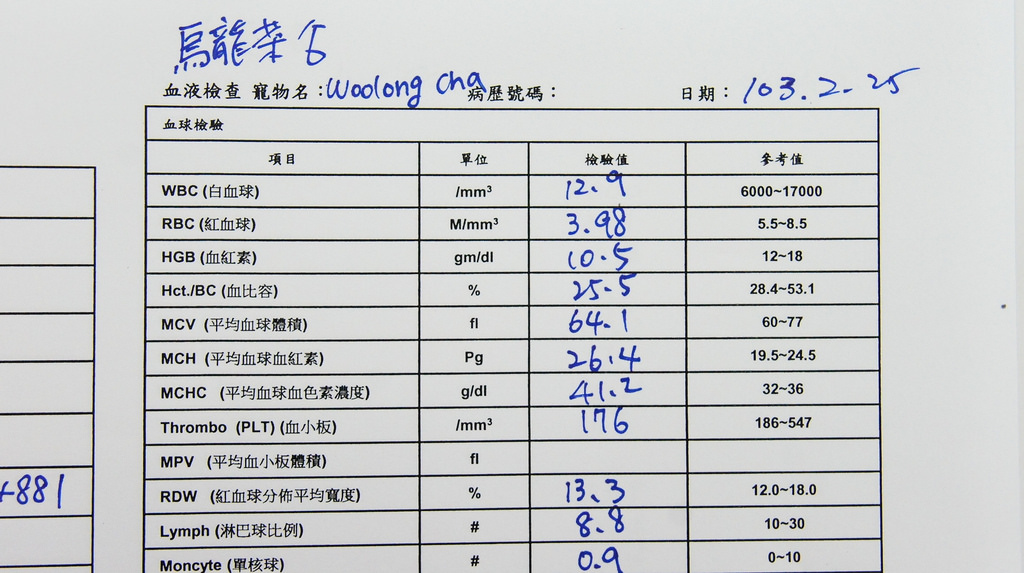 烏龍茶
血液檢查 寵物名：Woolong Cha 病歷號碼： 日期：103.2.25
血球檢驗
項目 單位 檢驗值 參考值
WBC (白血球) /mm³ 12.9 6000~17000
RBC (紅血球) M/mm³ 3.98 5.5~8.5
HGB (血紅素) gm/dl 10.5 12~18
Hct./BC (血比容) % 25.5 28.4~53.1
MCV (平均血球體積) fl 64.1 60~77
MCH (平均血球血紅素) Pg 26.4 19.5~24.5
MCHC (平均血球血色素濃度) g/dl 41.2 32~36
Thrombo (PLT) (血小板) /mm³ 176 186~547
MPV (平均血小板體積) fl
+881
RDW (紅血球分佈平均寬度) % 13.3 12.0~18.0
Lymph (淋巴球比例) # 8.8 10~30
Moncyte (單核球) # 0.9 0~10